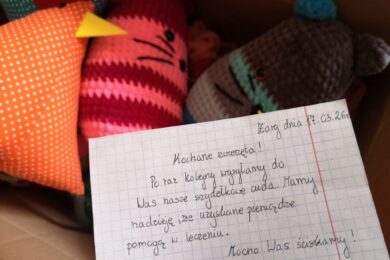 Żary dnia 17.03.26r
Kochane zwierzęta!
Po raz kolejny wysyłamy do
Was nasze szydełkowe cuda. Mamy
nadzieję, że uzyskane pieniądze
pomogą w leczeniu.
Mocno Was ściskamy!